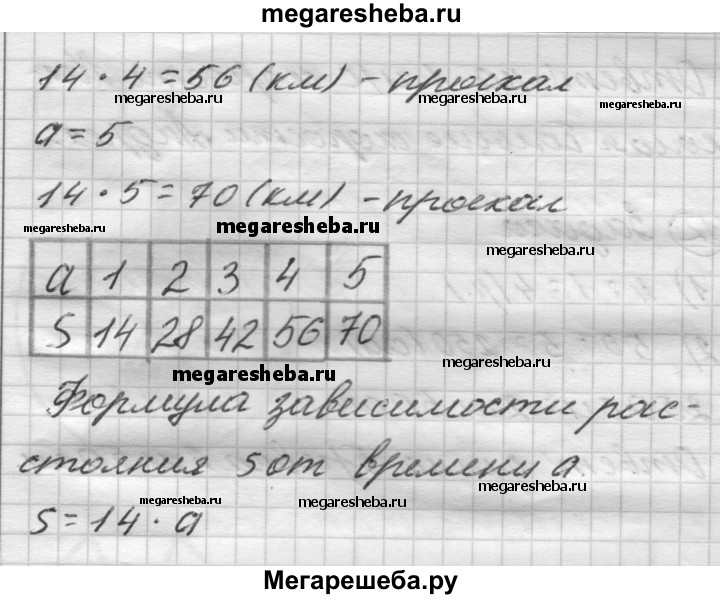 megaresheba.ru
14 · 4 = 56 (км) - проехал
megaresheba.ru megaresheba.ru megaresheba.ru
a = 5
14 · 5 = 70 (км) - проехал
megaresheba.ru megaresheba.ru
megaresheba.ru
a 1 2 3 4 5
S 14 28 42 56 70
megaresheba.ru
megaresheba.ru
Формула зависимости рас-
стояния S от времени a
megaresheba.ru
megaresheba.ru megaresheba.ru
S = 14 · a
Мегарешеба.ру